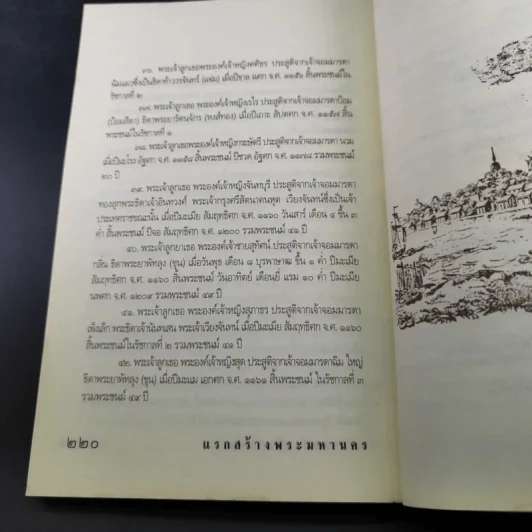 ๓๖. พระเจ้าลูกเธอพระองค์เจ้าหญิงทศิธร ประสูติจากเจ้าจอมมารดา
ฉิมแมวซึ่งเป็นธิดาท้าววรจันทร์ (แจ่ม) เมื่อปีขาล ฉศก จ.ศ. ๑๑๕๖ สิ้นพระชนม์ใน
รัชกาลที่ ๒
๓๗. พระเจ้าลูกเธอ พระองค์เจ้าหญิงเรไร ประสูติจากเจ้าจอมมารดาป้อม
(ป้อมสีดา) ธิดาพระยารัตนจักร (หงส์ทอง) เมื่อปีเถาะ สัปตศก จ.ศ. ๑๑๕๗ สิ้น
พระชนม์ในรัชกาลที่ ๑
๓๘. พระเจ้าลูกเธอ พระองค์เจ้าหญิงกระษัตรี ประสูติจากเจ้าจอมมารดา นวม
เมื่อปีมะโรง อัฐศก จ.ศ. ๑๑๕๘ สิ้นพระชนม์ ปีชวด อัฐศก จ.ศ. ๑๑๗๘ รวมพระชนม์
๒๐ ปี
๓๙. พระเจ้าลูกเธอ พระองค์เจ้าหญิงจันทบุรี ประสูติจากเจ้าจอมมารดา
ทองสุกพระธิดาเจ้าอินทวงศ์ พระเจ้ากรุงศรีสัตนาคนหุต เวียงจันทน์ซึ่งเป็นเจ้า
ประเทศราชขณะนั้น เมื่อปีมะเมีย สัมฤทธิศก จ.ศ. ๑๑๖๐ วันเสาร์ เดือน ๔ ขึ้น ๓
ค่ำ สิ้นพระชนม์ ปีจอ สัมฤทธิศก จ.ศ. ๑๒๐๐ รวมพระชนม์ ๔๑ ปี
๔๐. พระเจ้าลูกยาเธอ พระองค์เจ้าชายสุทัศน์ ประสูติจากเจ้าจอมมารดา
กลิ่น ธิดาพระยาพัทลุง (ขุน) เมื่อวันพุธ เดือน ๘ บุรพาษาฒ ขึ้น ๑ ค่ำ ปีมะเมีย
สัมฤทธิศก จ.ศ. ๑๑๖๐ สิ้นพระชนม์ วันอาทิตย์ เดือนยี่ แรม ๑๐ ค่ำ ปีมะเมีย
นพศก จ.ศ. ๑๒๐๙ รวมพระชนม์ ๔๙ ปี
๔๑. พระเจ้าลูกเธอ พระองค์เจ้าหญิงสุภาธร ประสูติจากเจ้าจอมมารดา
เพ็งเล็ก พระธิดาเจ้านันทเสน พระเจ้าเวียงจันทน์ เมื่อปีมะเมีย สัมฤทธิศก จ.ศ. ๑๑๖๐
สิ้นพระชนม์ในรัชกาลที่ ๒ รวมพระชนม์ ๔๑ ปี
๔๒. พระเจ้าลูกเธอ พระองค์เจ้าหญิงสุด ประสูติจากเจ้าจอมมารดาฉิม ใหญ่
ธิดาพระยาพัทลุง (ขุน) เมื่อปีมะแม เอกศก จ.ศ. ๑๑๖๑ สิ้นพระชนม์ ในรัชกาลที่ ๓
รวมพระชนม์ ๔๙ ปี
๒๒๐ แรกสร้างพระมหานคร